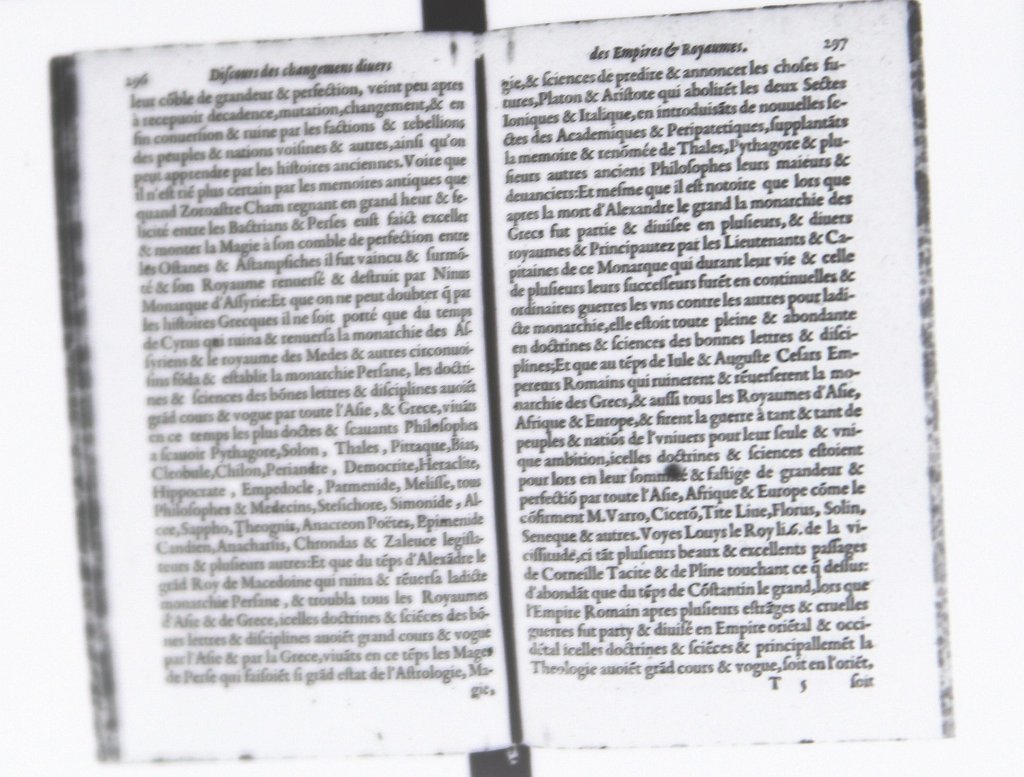 296 Discours des changemens divers
leur cõble de grandeur & perfection, veint peu apres
à recepuoir decadence, mutation, changement, & en
fin conuersion & ruine par les factions & rebellions
des peuples & nations voisines & autres, ainsi qu'on
peut apprendre par les histoires anciennes. Voire que
il n'est riẽ plus certain par les memoires antiques que
quand Zoroastre Cham regnant en grand heur & fe-
licité entre les Bactrians & Perses eust faict exceller
& monter la Magie à son comble de perfection entre
les Ostanes & Astampsiches il fut vaincu & surmõ-
té & son Royaume renuersé & destruit par Ninus
Monarque d'Assyrie: Et que on ne peut doubter q̃ par
les histoires Grecques il ne soit porté que du temps
de Cyrus qui ruina & renuersa la monarchie des As-
syriens & le royaume des Medes & autres circonuoi-
sins fõda & establit la monarchie Persane, les doctri-
nes & sciences des bõnes lettres & disciplines auoiẽt
grãd cours & vogue par toute l'Asie, & Grece, viuãts
en ce temps les plus doctes & scauants Philosophes
a scauoir Pythagore, Solon, Thales, Pittaque, Bias,
Cleobule, Chilon, Periandre, Democrite, Heraclite,
Hippocrate, Empedocle, Parmenide, Melisse, tous
Philosophes & Medecins, Stesichore, Simonide, Al-
cee, Sappho, Theognis, Anacreon Poëtes, Epimenide
Candien, Anacharsis, Chrondas & Zaleuce legisla-
teurs & plusieurs autres: Et que du tẽps d'Alexãdre le
grãd Roy de Macedoine qui ruina & rẽuersa ladicte
monarchie Persane, & troubla tous les Royaumes
d'Asie & de Grece, icelles doctrines & sciẽces des bõ-
nes lettres & disciplines auoiẽt grand cours & vogue
par l'Asie & par la Grece, viuãts en ce tẽps les Mages
de Perse qui faisoiẽt si grãd estat de l'Astrologie, Ma-
gie,
des Empires & Royaumes. 297
gie, & sciences de predire & annoncer les choses fu-
tures, Platon & Aristote qui abolirẽt les deux Sectes
Ioniques & Italique, en introduisãts de nouuelles se-
ctes des Academiques & Peripatetiques, supplantãts
la memoire & renõmée de Thales, Pythagore & plu-
sieurs autres anciens Philosophes leurs maieurs &
deuanciers: Et mesme que il est notoire que lors que
apres la mort d'Alexandre le grand la monarchie des
Grecs fut partie & diuisee en plusieurs, & diuers
royaumes & Principautez par les Lieutenants & Ca-
pitaines de ce Monarque qui durant leur vie & celle
de plusieurs leurs successeurs furẽt en continuelles &
ordinaires guerres les vns contre les autres pour ladi-
cte monarchie, elle estoit toute pleine & abondante
en doctrines & sciences des bonnes lettres & disci-
plines; Et que au tẽps de Iule & Auguste Cesars Em-
pereurs Romains qui ruinerent & rẽuerserent la mo-
narchie des Grecs, & aussi tous les Royaumes d'Asie,
Afrique & Europe, & firent la guerre à tant & tant de
peuples & natiõs de l'vniuers pour leur seule & vni-
que ambition, icelles doctrines & sciences estoient
pour lors en leur sommité & fastige de grandeur &
perfectiõ par toute l'Asie, Afrique & Europe cõme le
cõfirment M. Varro, Cicerõ, Tite Liue, Florus, Solin,
Seneque & autres. Voyes Louys le Roy li. 6. de la vi-
cissitude, ci tãt plusieurs beaux & excellents passages
de Corneille Tacite & de Pline touchant ce q̃ dessus:
d'abondãt que du tẽps de Cõstantin le grand, lors que
l'Empire Romain apres plusieurs estrãges & cruelles
guerres fut party & diuisé en Empire oriẽtal & occi-
dẽtal icelles doctrines & sciẽces & principallemẽt la
Theologie auoiẽt grãd cours & vogue, soit en l'oriẽt,
T 5 soit